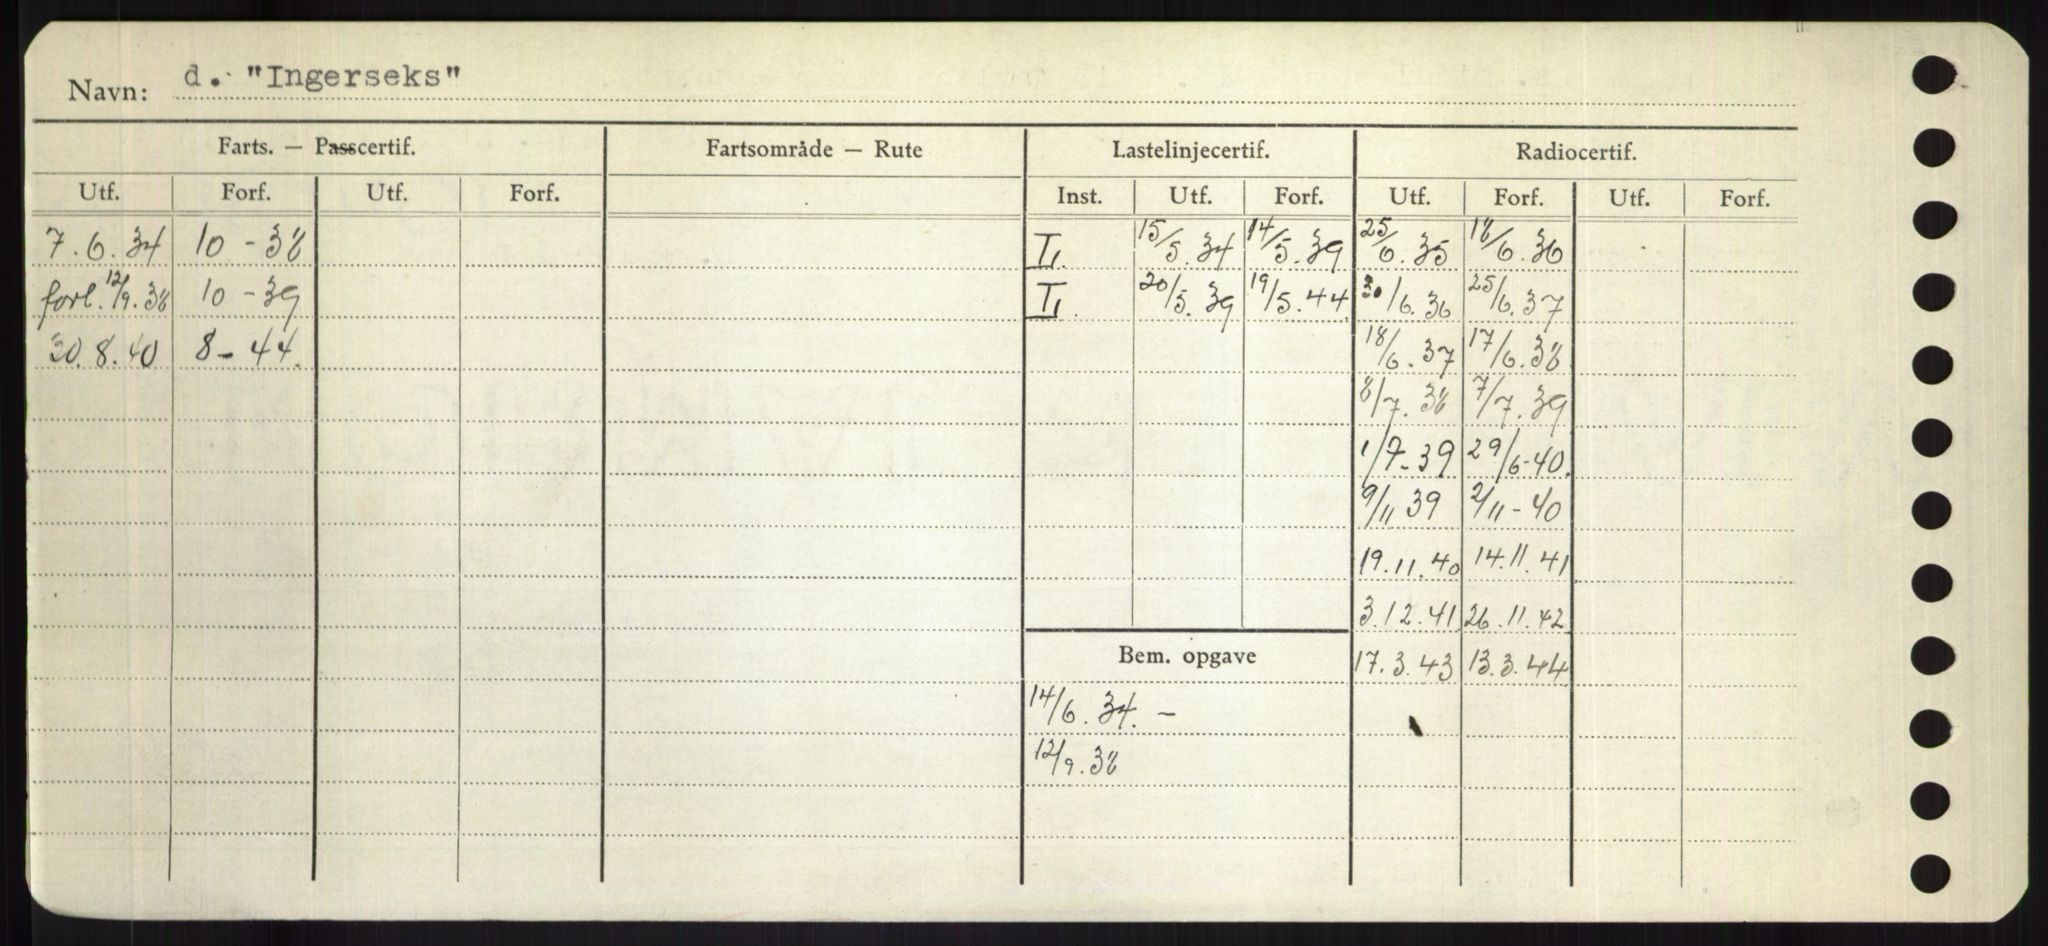 Navn: d. "Ingerseks"
Farts. — Passcertif. Fartsområde — Rute Lastelinjecertif. Radiocertif.
Utf. Forf. Utf. Forf. Inst. Utf. Forf. Utf. Forf. Utf. Forf.
7.6.34 10-38 15/5.34 14/5.39 25/6.35 18/6.36
forl. 12/9.38 10-39 20/5.39 19/5.44 30/6.36 25/6.37
30.8.40 8-44. 18/6.37 17/6.38
8/7.38 7/7.39
1/7-39 29/6-40.
9/11 39 2/11-40
19.11.40 14.11.41
3.12.41 26.11.42
Bem. opgave 17.3.43 13.3.44
14/6.34. —
12/9.38